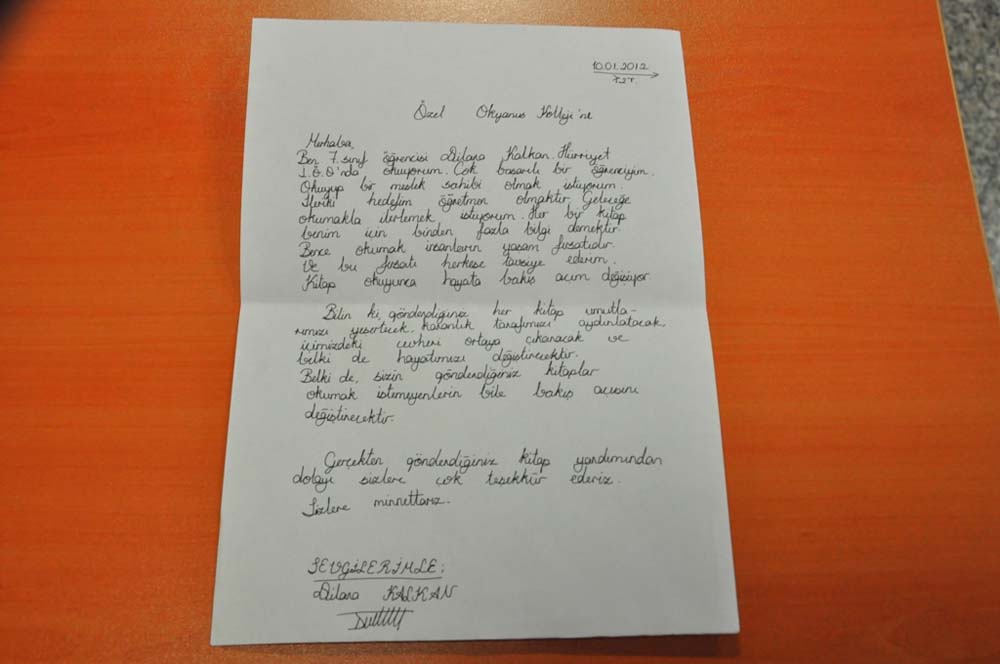 10.01.2012
Özel Okyanus Kolleji'ne
Merhaba,
Ben 7. sınıf öğrencisi Dilara Kalkan. Hürriyet
İ.Ö.O'nda okuyorum. Çok başarılı bir öğrenciyim.
Okuyup bir meslek sahibi olmak istiyorum.
İleriki hedefim öğretmen olmaktır. Geleceğe
okumakla ilerlemek istiyorum. Her bir kitap
benim için binden fazla bilgi demektir.
Bence okumak insanların yaşam fırsatıdır.
Ve bu fırsatı herkese tavsiye ederim.
Kitap okuyunca hayata bakış açım değişiyor.
Bilin ki, gönderdiğiniz her kitap umutla-
rımızı yeşertecek, karanlık tarafımızı aydınlatacak,
içimizdeki cevheri ortaya çıkaracak ve
belki de hayatımızı değiştirecektir.
Belki de, sizin gönderdiğiniz kitaplar
okumak istemeyenlerin bile bakış açısını
değiştirecektir.
Gerçekten gönderdiğiniz kitap yardımından
dolayı sizlere çok teşekkür ederiz.
Sizlere minnettarız.
SEVGİLERİMLE;
Dilara KALKAN